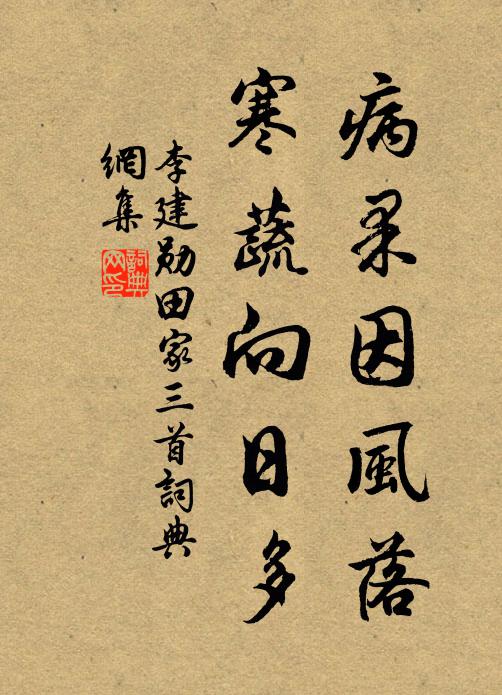 病果因風落
寒蔬向日多
李建勛田家三首詞典
網集
詞典
网印